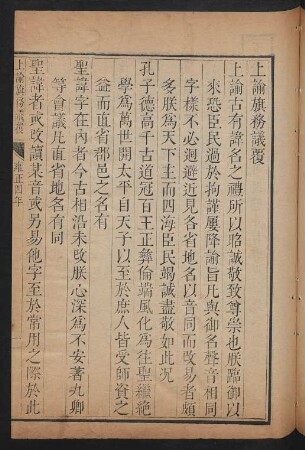 上諭旗務議覆
上諭古有諱名之禮所以昭誠敬致尊崇也朕臨御以
來恐臣民過於拘謹屢降諭旨凡與御名聲音相同
字樣不必迴避近見各省地名以音同而改易者頗
多朕為天下主而四海臣民竭誠盡敬如此况
孔子德高千古道冠百王正彝倫端風化為往聖繼絶
學為萬世開太平自天子以至於庶人皆受師資之
益而直省郡邑之名有
聖諱字在內者今古相沿未改朕心深為不安著九卿
等會議凡直省地名有同
聖諱者或改讀某音或另易他字至於常用之際於此
上諭旗務議覆
雍正四年